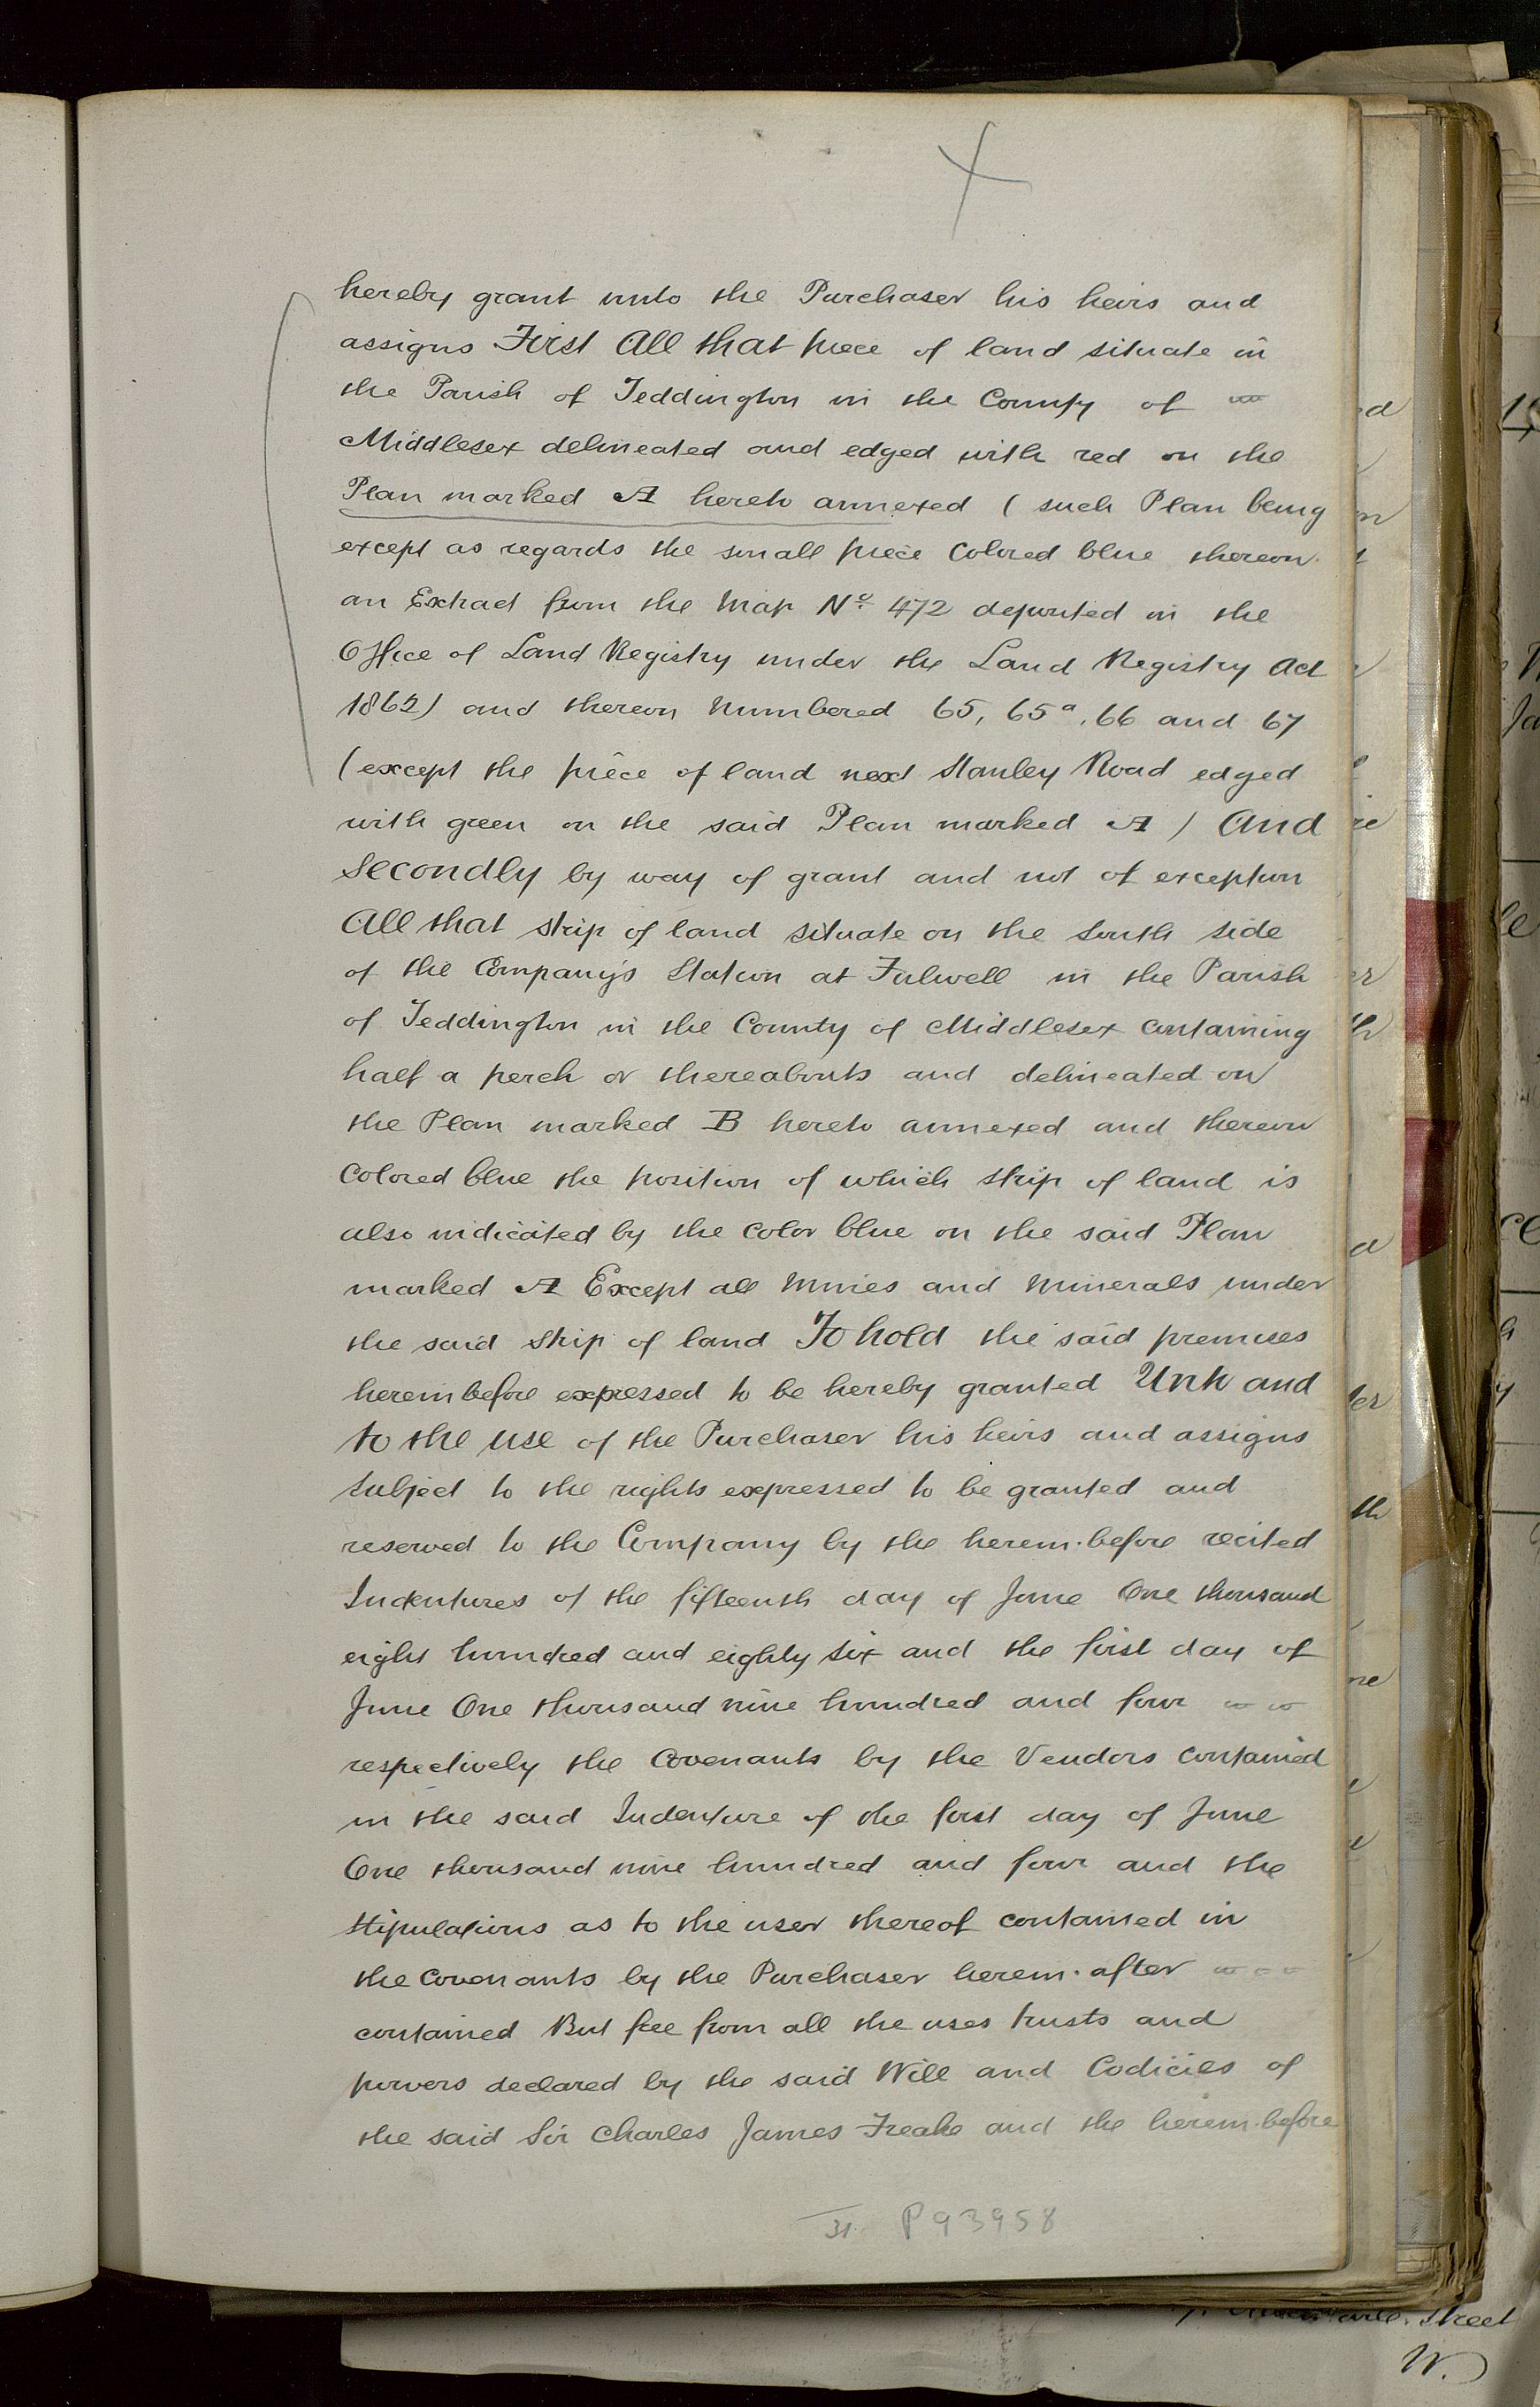 hereby grant unto the Purchaser his heirs and
assigns First All that piece of land situate in
the Parish of Teddington in the County of
Middlesex delineated and edged with red on the
Plan marked A hereto annexed ( such Plan being
except as regards the small piece colored blue thereon
an Extract from the Map No. 472 deposited in the
Office of Land Registry under the Land Registry Act
1862) and thereon numbered 65, 65a, 66 and 67
(except the piece of land next Stanley Road edged
with green on the said Plan marked A ) And
Secondly by way of grant and not of exception
All that strip of land situate on the South side
of the Company's Station at Fulwell in the Parish
of Teddington in the County of Middlesex containing
half a perch or thereabouts and delineated on
the Plan marked B hereto annexed and thereon
colored blue the position of which strip of land is
also indicated by the color blue on the said Plan
marked A Except all Mines and Minerals under
the said strip of land To hold the said premises
hereinbefore expressed to be hereby granted Unto and
to the use of the Purchaser his heirs and assigns
subject to the rights expressed to be granted and
reserved to the Company by the herein-before recited
Indentures of the fifteenth day of June One thousand
eight hundred and eighty six and the first day of
June One thousand nine hundred and four
respectively the Covenants by the Vendors contained
in the said Indenture of the first day of June
One thousand nine hundred and four and the
stipulations as to the user thereof contained in
the covenants by the Purchaser herein-after
contained But free from all the uses trusts and
powers declared by the said Will and Codicils of
the said Sir Charles James Freake and the herein-before
31. P93958
Street
W.